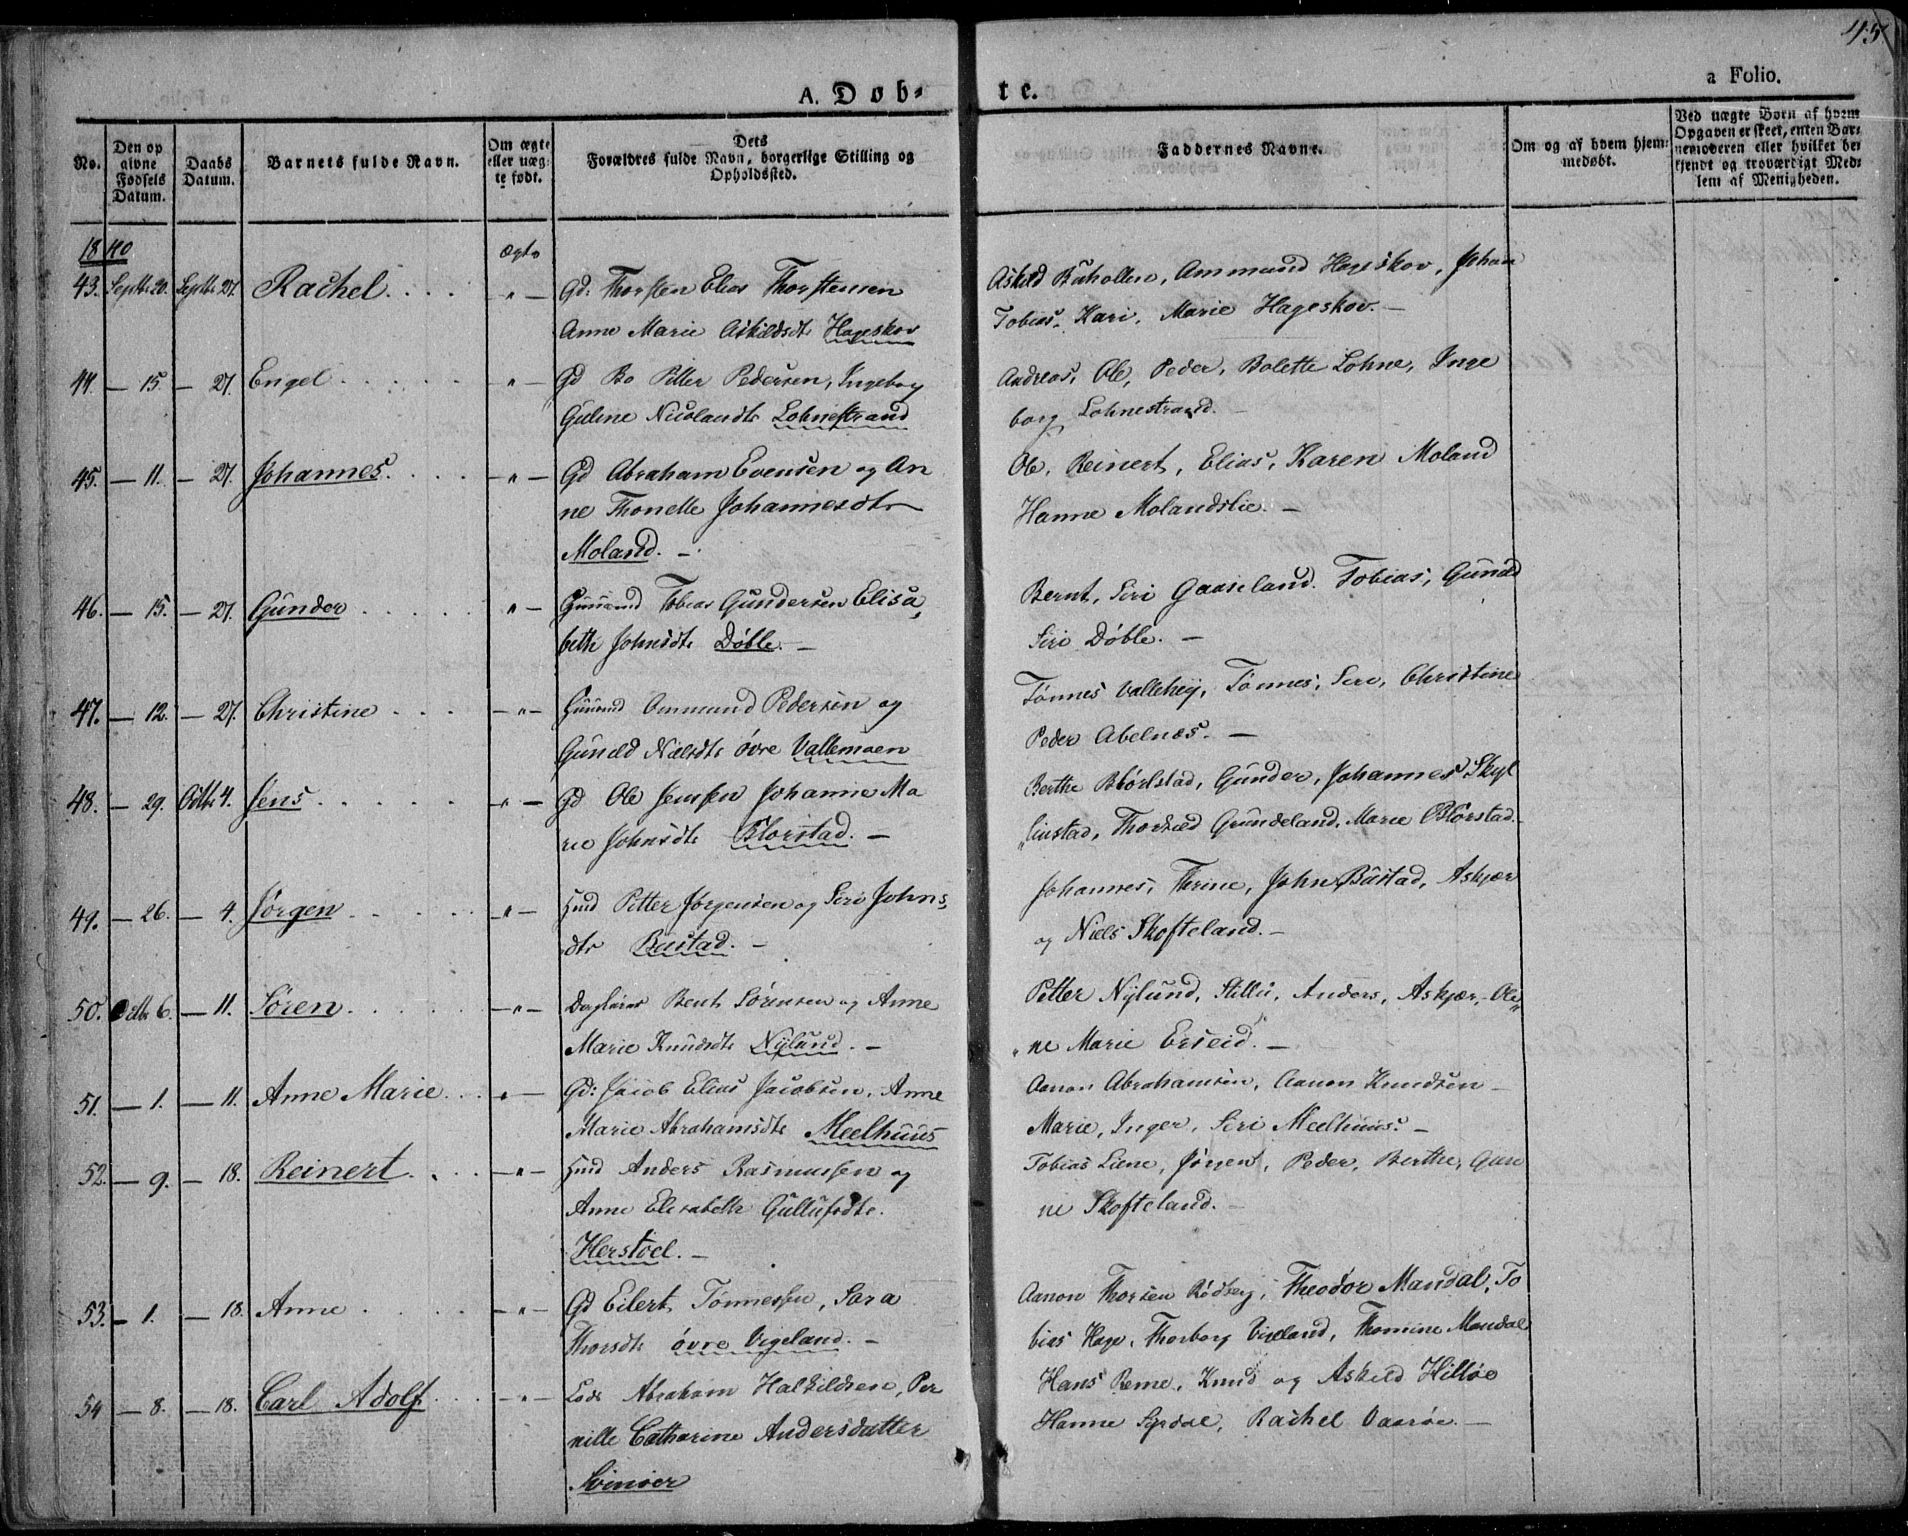 45
a Folio.
A. Döb-
te.
No.
Den op
givne
Fødsels
Datum.
Daabs
Datum.
Barnets fulde Navn.
Om ægte
eller uæg-
te født.
Dets
Forældres fulde Navn, borgerlige Stilling og
Opholdssted.
Faddernes Navne.
Om og af hvem hjem-
medøbt.
Ved uægte Børn af hvem
Opgaven er skeet, enten Bar-
nemoderen eller hvilket be-
kjendt og troværdigt Med-
lem af Menigheden.
1840
Ægte
43. Septb. 20. Septb. 27. Rachel . . . . " — Gd: Thorsten Elias Thorstensen
Anne Marie Askildsdt. Hageskov
Askild Ammund Hageskov, Johan
Tobias, Kari, Marie Hageskov. —
44. — 15. — 27. Engel . . . . " — Gd Bo Petter Pedersen, Ingeborg
Guline Lohnestrand
Andreas, Ole, Peder, Bolette Lohne, Inge
borg Lohnestrand. —
45. — 11. — 27. Johannes. . . . — " — Gd Abraham Evensen og An
ne Thonette Johannesdtr
Moland. —
Ole, Reinert, Elias, Karen Moland
Hanne Molandslie. —
46. — 15. — 27. Gunder . . . . " — Tobias Gundersen Elisa
beth Johnsdt. Døble. —
Bernt, Siri Gaaseland. Tobias, Gunild
Siri Døble. —
47. — 12. — 27. Christine . . . — " — Ommund Pedersen og
Gunild Nielsdt. øvre Vallemoen
Tønnes Vallehei, Tønnes, Siri, Christine
Peder Abelnæs. —
48. — 29. Octbr 4. Jens . . . . . — " — Gd Ole Jenssen Johanne Ma
rie Johnsdt. Blørstad. —
Berthe Blørstad, Gunder, Johannes Skjel
linstad, Thorkild Grundeland, Marie Blørstad. —
49. — 26. — 4. Jørgen . . . . — " — Hmd Petter Jørgensen og Siri Johns
dtr Bustad. —
Johannes, Thrine, John Bustad, Askjær
og Niels Skofteland. —
50. Octbr 6. — 11. Søren . . . . — " — Bent Sørensen og Anne
Marie Knudsdt. Nylund. —
Petter Nylund, Anders, Askjær, Ole
ne Marie Erseid. —
51. — 1. — 11. Anne Marie . . . " — Gd: Jacob Elias Jacobsen, Anne
Marie Abrahamsdt. Meelhuus
Aanon Abrahamsen, Aanon Knudsen —
Marie, Inger, Siri Meelhuus. —
52. — 9. — 18. Reinert . . — " — Hmd Anders Rasmussen og
Anne Elisabeth Gullufsdtr.
Herstøel. —
Tobias Liene, Jørgen, Peder, Berthe, Gun
ne Skofteland. —
53. — 1. — 18. Anne . . . . — " — Gd Eilert Tønnessen, Sara
Thorsdt. øvre Vigeland. —
Aanon Thorsen Rødberg, Theodor Mandal, To
bias Hage, Thorborg Vigeland, Thomine Mandal
54 — 8. — 18. Carl Adolf. . . — " — Lods Abraham Halkildsen, Per
nille Catharine Andersdatter
Svinøer
Hans Reme, Knud og Askild Hilløe
Hanne Syrdal, Rachel Vaarøe. —